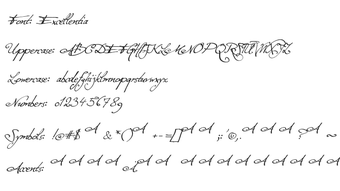 Font: Excellentia
Uppercase: ABCDEFGHIJKLMNOPQRSTUVWXYZ
Lowercase: abcdefghijklmnopqrstuvwxyz
Numbers: 0123456789
Symbols: !@#$ & *() +-=[] ;: '@,. ? ~
Accents: